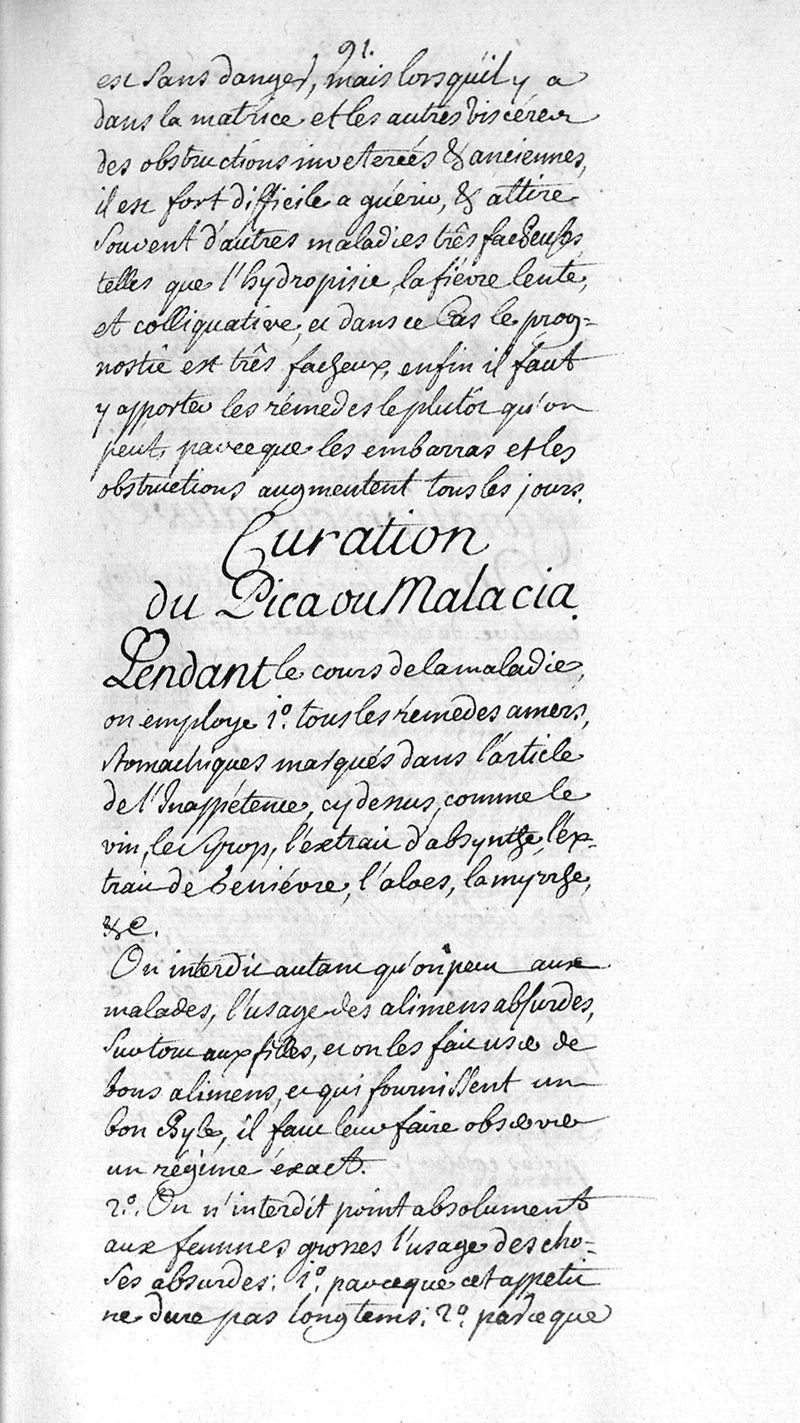 91.
est sans danger, mais lorsqu'il y a
dans la matrice et les autres viscéres
des obstructions inveterées & anciennes,
il est fort difficile a guérir, & attire
souvent d'autres maladies três facheuses
telles que l'hydropisie, la fiévre lente,
et colliquative, et dans ce Cas le prog-
nostic est três facheux, enfin il faut
y apporter les rémedes le plutôt qu'on
peut, parceque les embarras et les
obstructions augmentent tous les jours.
Curation
du Pica ou Malacia.
Pendant le cours de la maladie,
on employe 1º. tous les rémedes amers,
stomachiques marqués dans l'article
de l'Inappétence, cy dessus, comme le
vin, le syrop, l'extrait d'absynthe, l'ex-
trait de Genièvre, l'aloes, la myrrhe,
&c.
On interdit autant qu'on peut aux
malades, l'usage des alimens absurdes,
surtout aux filles, et on les fait user de
bons alimens, et qui fournissent un
bon chyle, il faut leur faire observer
un régime éxact.
2º. On n'interdit point absolument
aux femmes grosses l'usage des cho-
ses absurdes: 1º. parceque cet appetit
ne dure pas longtems; 2º. parceque